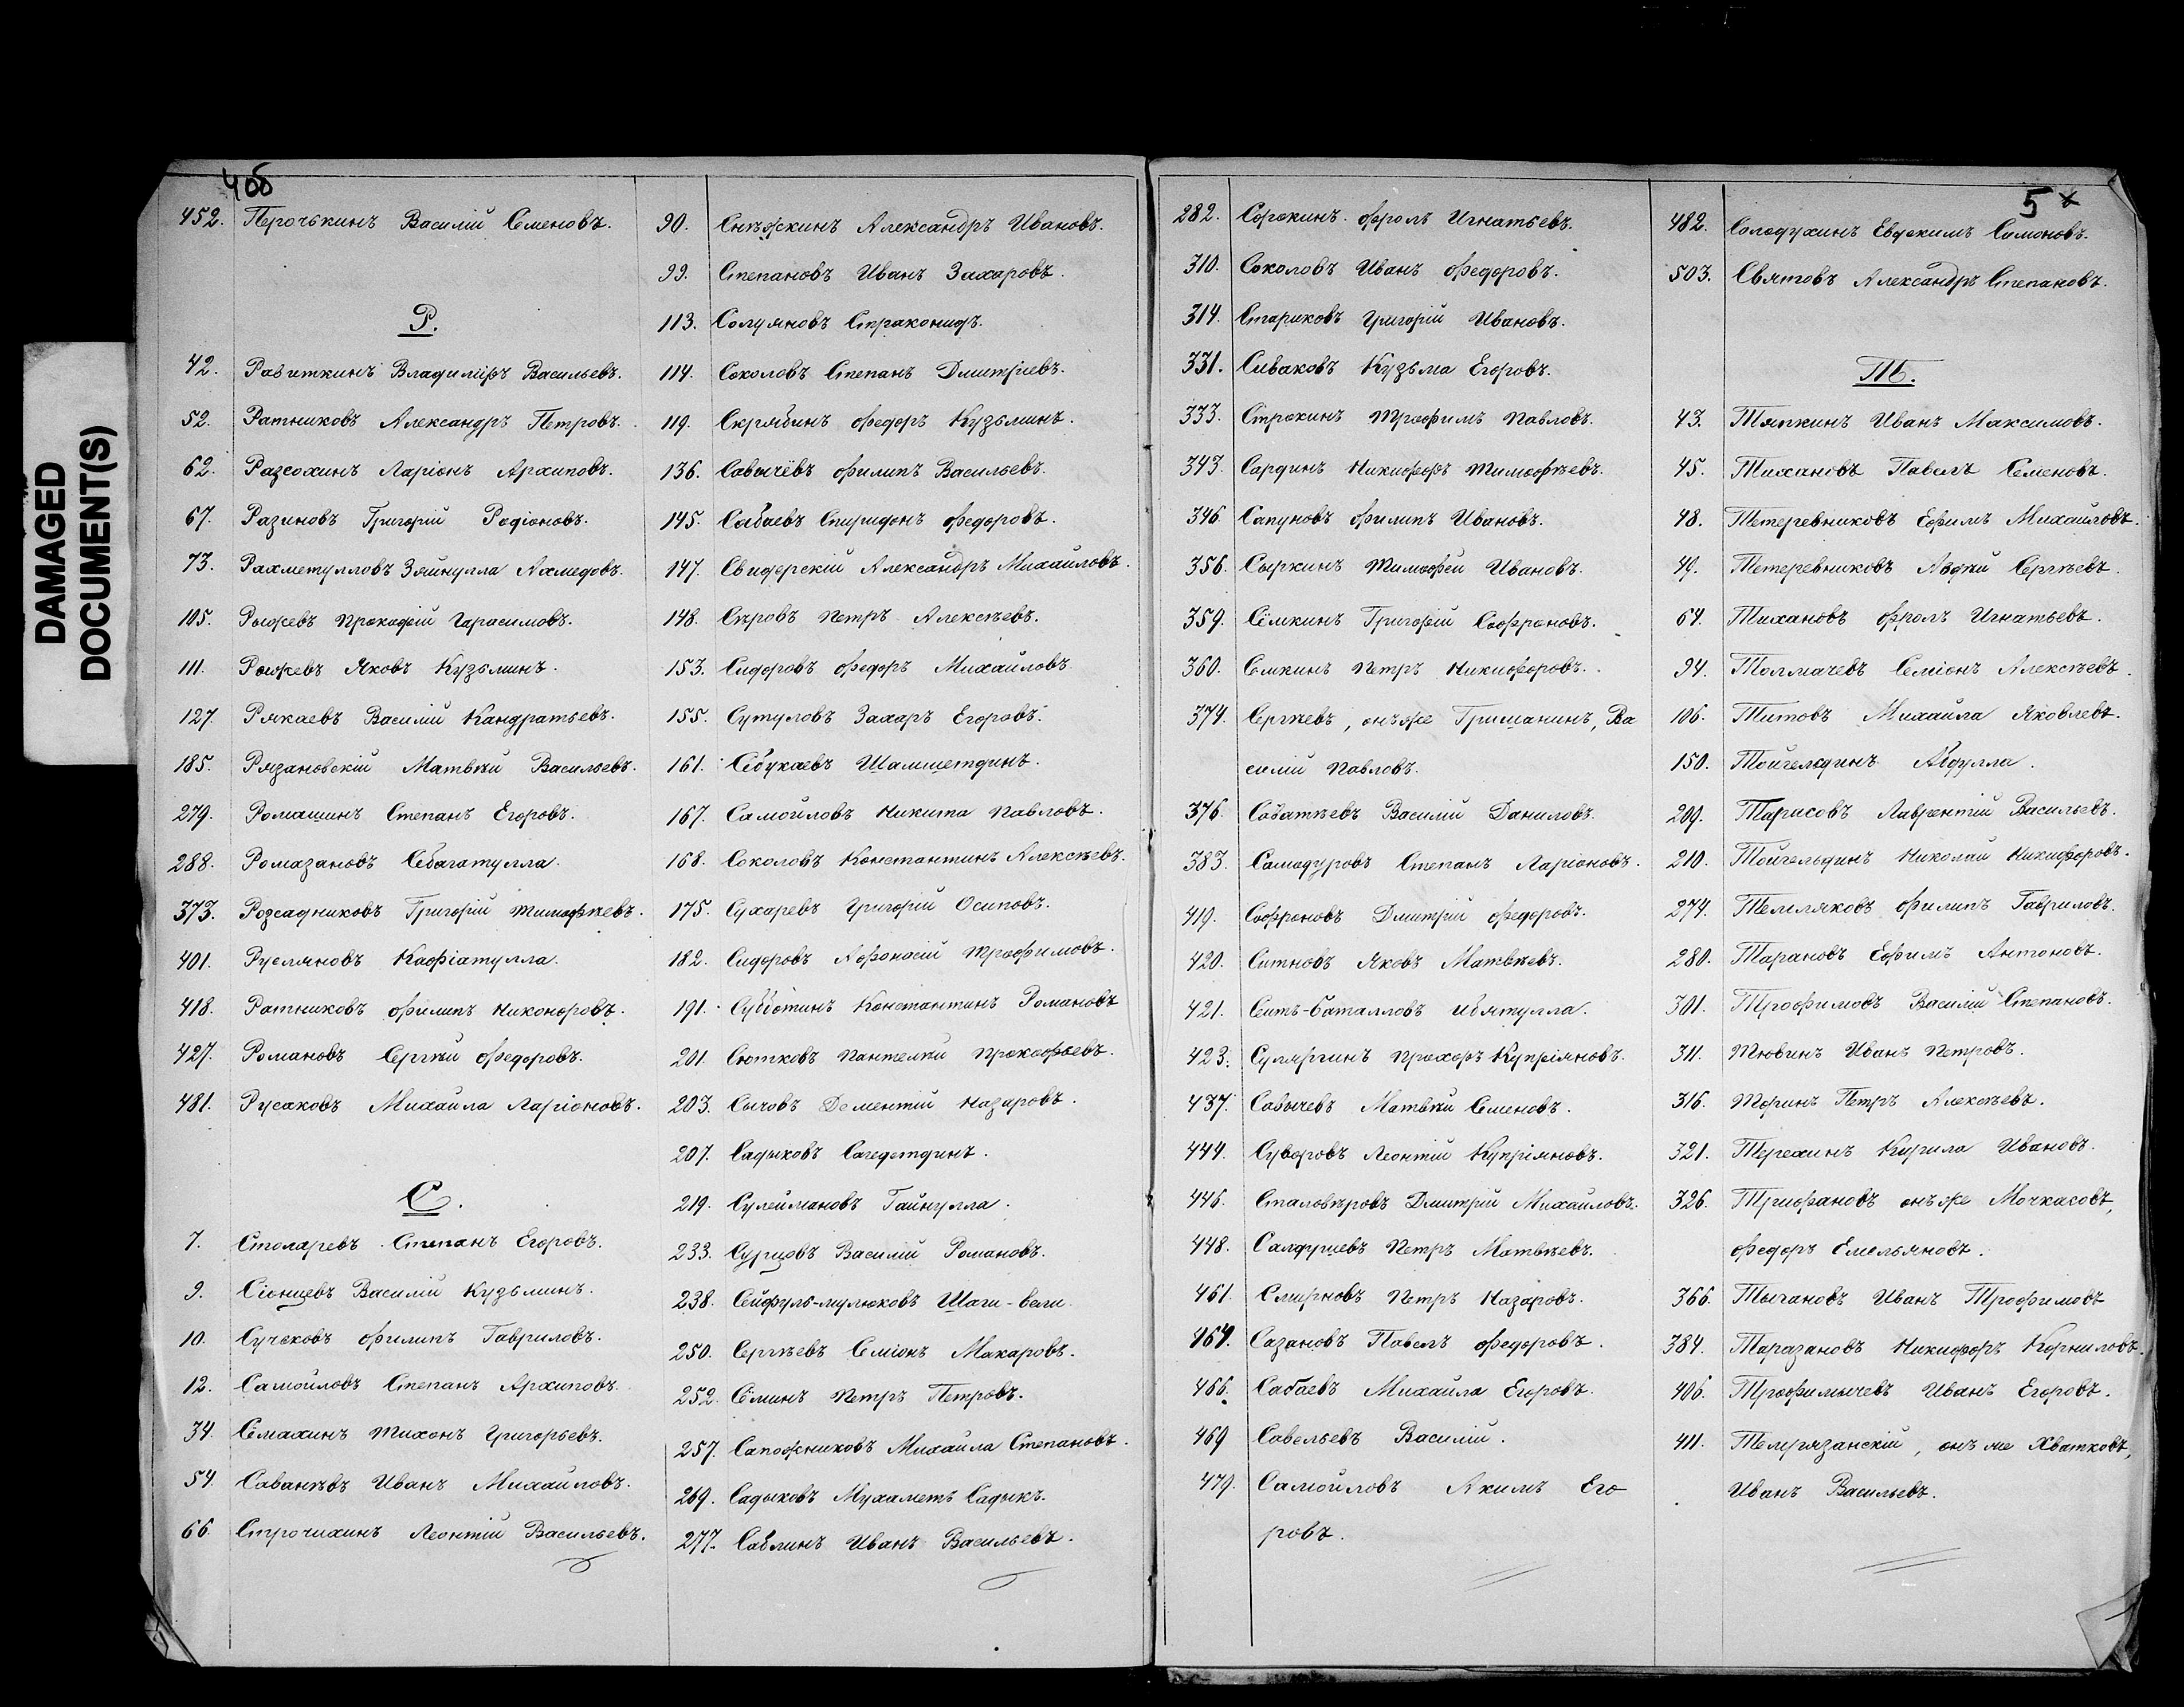 DAMAGED
DOCUMENT(S)
4об
452. Перочькинъ Василій Семеновъ.
Р.
42. Равиткинъ Владиміръ Васильевъ.
52. Ратниковъ Александръ Петровъ.
62. Разсохинъ Ларіонъ Архиповъ.
67. Разиновъ Григорій Родіоновъ.
73. Рахметулловъ Зяйнулла Ахмедовъ.
105. Рыжевъ Прокофій Гарасимовъ.
111. Рыжевъ Яковъ Кузьминъ.
127. Рякаевъ Василій Кандратьевъ.
185. Рязановскій Матвѣй Васильевъ.
279. Ромашинъ Степанъ Егоровъ.
288. Ромазановъ Сбагатулла.
373. Розсадниковъ Григорій Тимофѣевъ.
401. Русляновъ Кафіатулла.
418. Ратниковъ Филипъ Никоноровъ.
427. Романовъ Сергѣй Федоровъ.
481. Русаковъ Михайла Ларіоновъ.
С.
7. Столяревъ Степанъ Егоровъ.
9. Сіонцевъ Василій Кузьминъ.
10. Сучековъ Филипъ Гавриловъ.
12. Самойловъ Степанъ Архиповъ.
34. Сёмахинъ Тихонъ Григорьевъ.
54. Саванѣвъ Иванъ Михайловъ.
66. Строчихинъ Леонтій Васильевъ.
90. Снѣжскинъ Александръ Ивановъ.
99. Степановъ Иванъ Захаровъ.
113. Солуяновъ Страконидъ.
114. Соколовъ Степанъ Дмитріевъ.
119. Скрябинъ Федоръ Кузьминъ.
136. Савычёвъ Филипъ Васильевъ.
145. Сабаевъ Спиридонъ Федоровъ.
147. Свидерскій Александръ Михайловъ.
148. Сѣровъ Петръ Алексѣевъ.
153. Сидоровъ Федоръ Михайловъ
155. Сутуловъ Захаръ Егоровъ.
161. Сёбукаевъ Шамшетдинъ.
167. Самойловъ Никита Павловъ.
168. Соколовъ Константинъ Алексѣевъ.
175. Сухаревъ Григорій Осиповъ.
182. Сидоровъ Афонасій Трофимовъ.
191. Субботинъ Константинъ Романовъ
201. Сютковъ Пантелѣй Прокофьевъ.
203. Сычовъ Дементій Назаровъ.
207. Садыковъ Сагедетдинъ.
219. Сулеймановъ Гайнулла.
233. Сурцовъ Василій Романовъ.
238. Сейфуль-мулюковъ Шаги-вели.
250. Сергѣевъ Семіонъ Макаровъ.
252. Сёминъ Петръ Петровъ.
257. Сапожниковъ Михайла Степановъ.
269. Садыковъ Мухаметъ Садыкъ.
277. Саблинъ Иванъ Васильевъ.
5
282. Сорокинъ Фролъ Игнатьевъ.
310. Соколовъ Иванъ Федоровъ.
314. Стариковъ Григорій Ивановъ.
331. Сиваковъ Кузьма Егоровъ.
333. Строкинъ Трофимъ Павловъ.
343. Сардинъ Никифоръ Тимофѣевъ.
346. Сапуновъ Филипъ Ивановъ.
356. Сыркинъ Тимофей Ивановъ.
359. Сёмкинъ Григорій Софроновъ.
360. Семкинъ Петръ Никифоровъ.
374. Сергѣевъ, онъ же Гришанинъ, Ва
силій Павловъ.
376. Саватѣевъ Василій Даниловъ.
383. Самодуровъ Степанъ Ларіоновъ.
419. Софроновъ Дмитрій Федоровъ.
420. Ситновъ Яковъ Матвѣевъ.
421. Сеитъ-баталловъ Ибятулла.
423. Сулягинъ Прохоръ Купріяновъ.
437. Савычевъ Матвѣй Семеновъ.
444. Суворовъ Леонтій Купріяновъ.
446. Сталовѣровъ Дмитрій Михайловъ.
448. Салдушевъ Петръ Матвѣевъ.
461. Смирновъ Петръ Назаровъ.
464. Сазановъ Павелъ Федоровъ.
466. Сабаевъ Михайла Егоровъ.
469 Савельевъ Василій.
479. Самойловъ Акимъ Его
ровъ.
482. Солодухинъ Евдокимъ Симоновъ.
503. Святовъ Александръ Степановъ.
Т.
43. Тяпкинъ Иванъ Максимовъ.
45. Тихановъ Павелъ Семеновъ.
48. Тетеревниковъ Ефимъ Михайловъ.
49. Тетеревниковъ Авдѣй Сергѣевъ.
64. Тихановъ Фролъ Игнатьевъ.
94. Толмачевъ Семіонъ Алексѣевъ.
106. Титовъ Михайла Яковлевъ.
150. Тойгелдинъ Абдулла.
209. Тарасовъ Лаврентій Васильевъ.
210. Тойгельдинъ Николай Никифоровъ.
274. Темляковъ Филипъ Гавриловъ.
280. Тарановъ Ефимъ Антоновъ.
301. Трофимовъ Василій Степановъ.
311. Тювинъ Иванъ Петровъ.
316. Торинъ Петръ Алексѣевъ.
321. Терехинъ Кирила Ивановъ.
326. Трифановъ онъ же Мочкасовъ,
Федоръ Емельяновъ.
366. Тычановъ Иванъ Трофимовъ
384. Таразановъ Никифоръ Корниловъ.
406. Трофимычевъ Иванъ Егоровъ.
411. Темрязанскій, онъ же Хватковъ,
Иванъ Васильевъ.